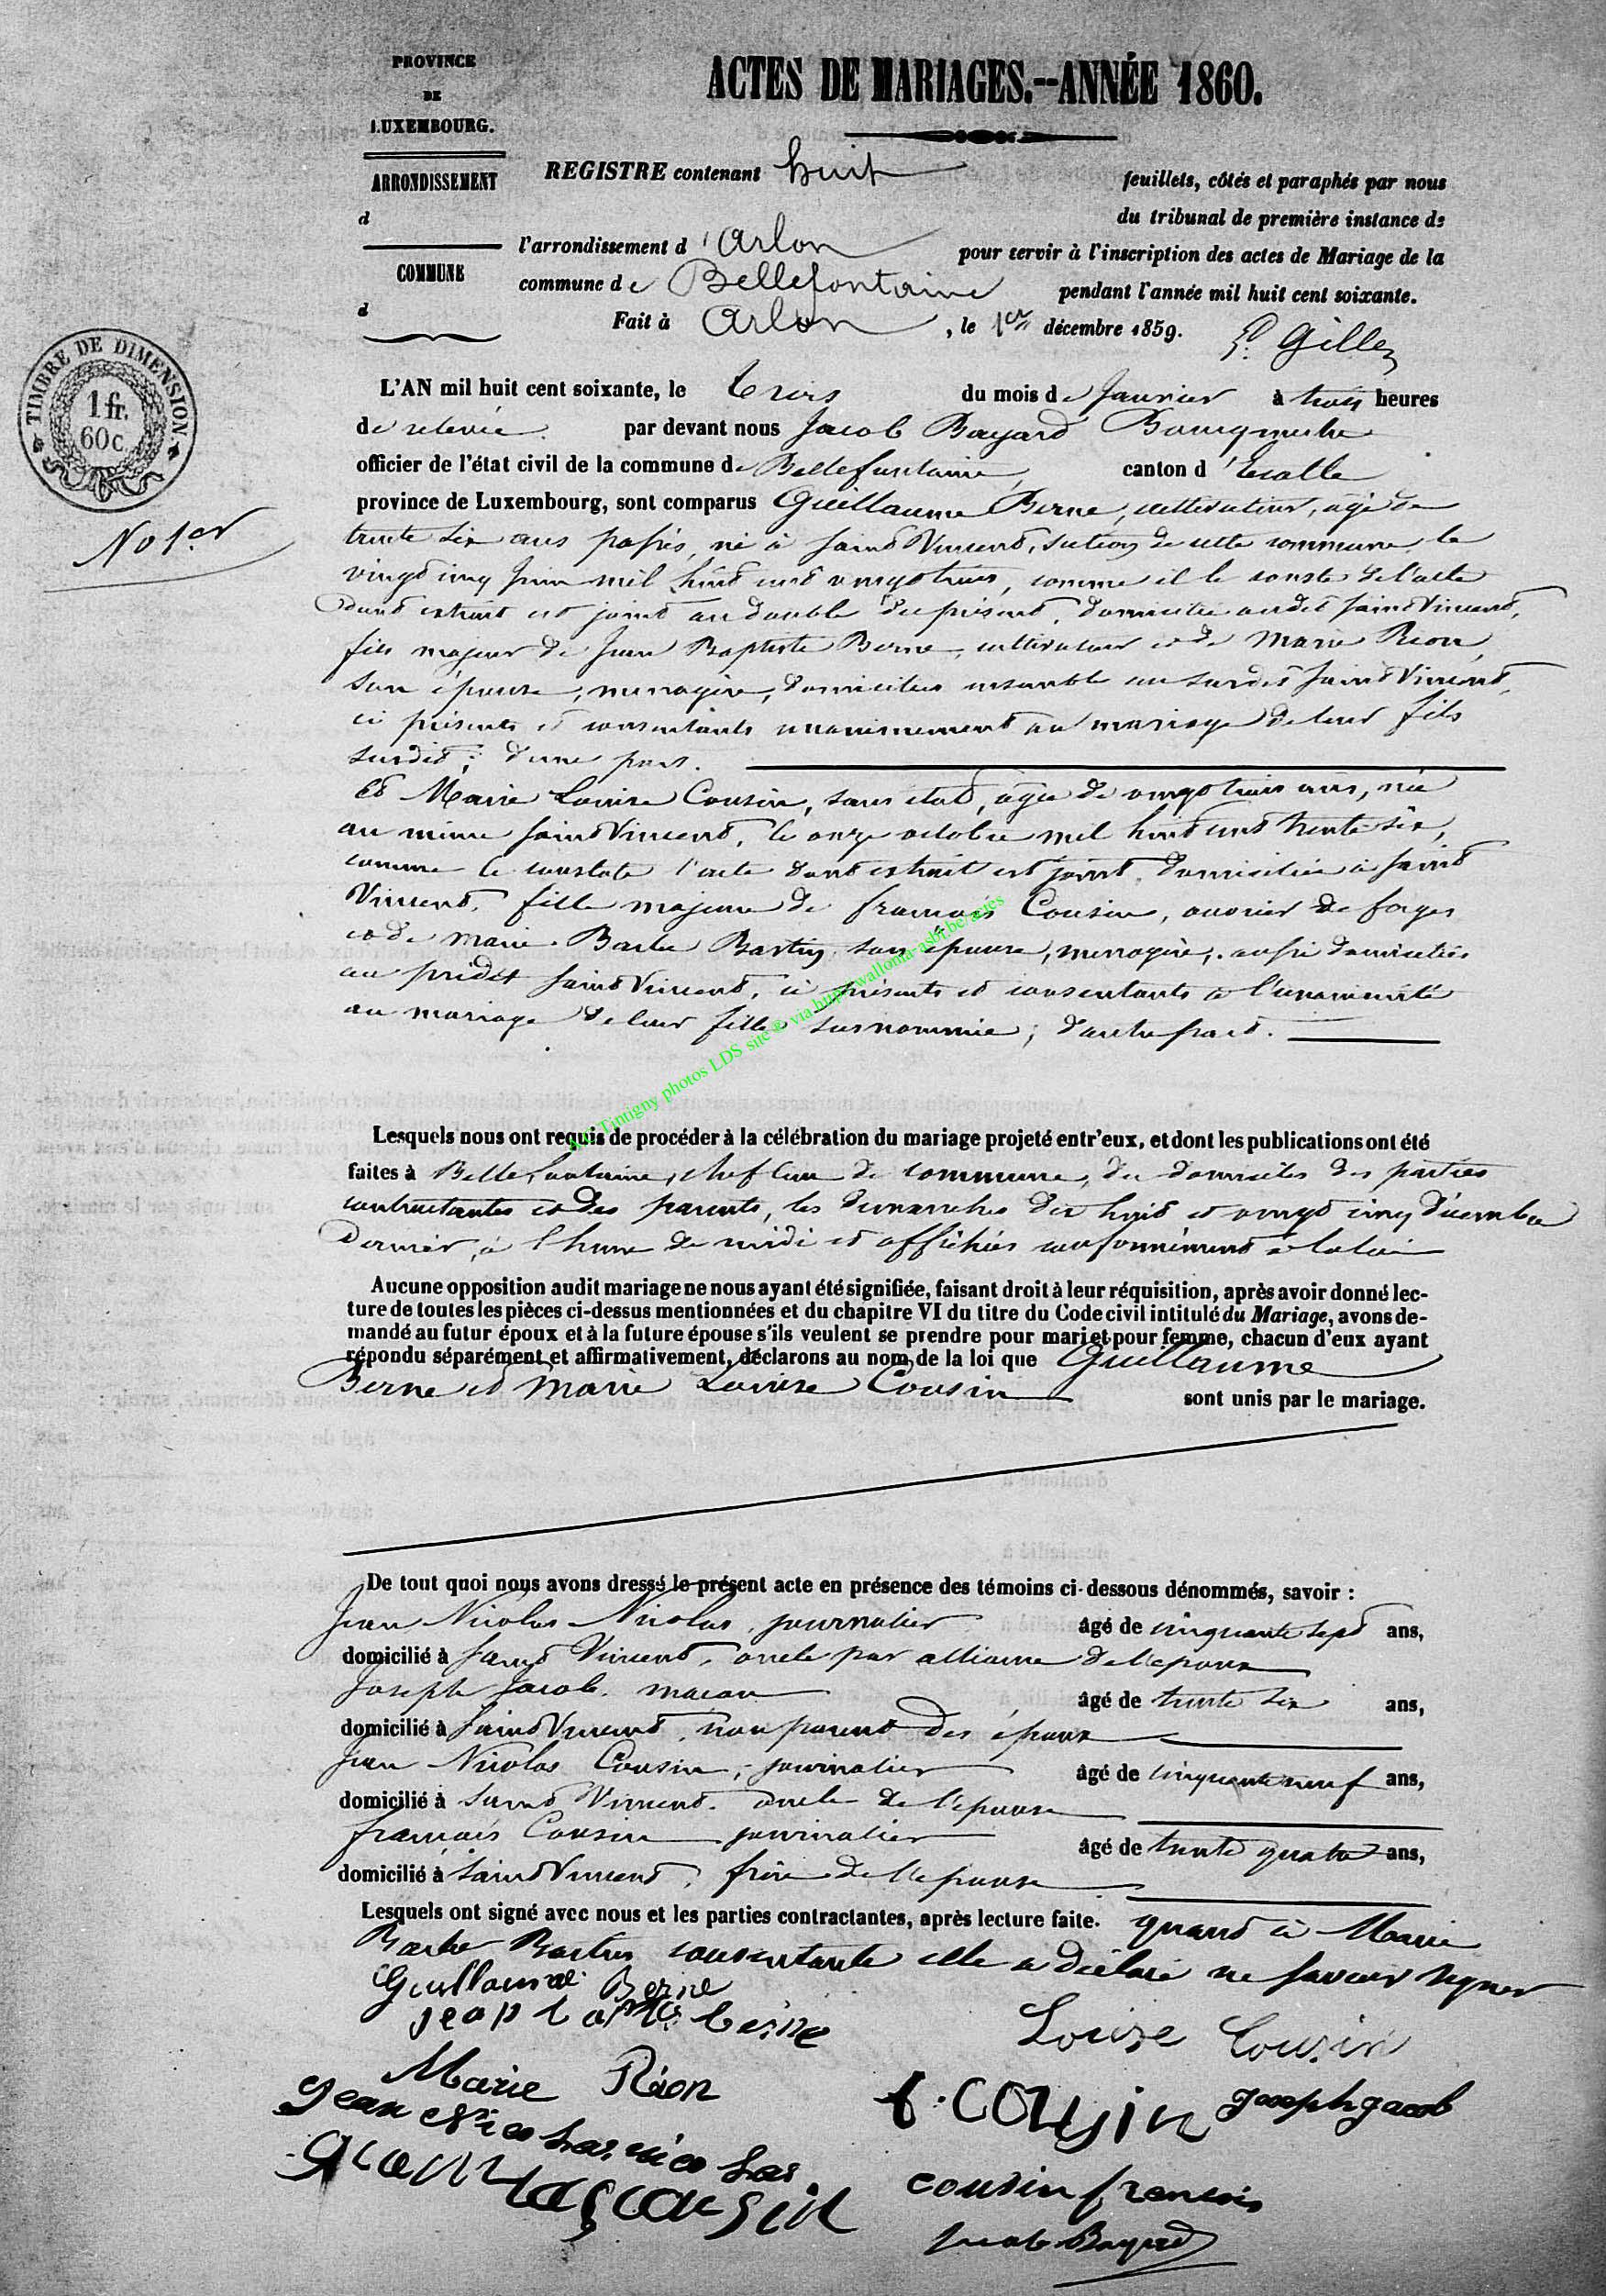 PROVINCE
DE
LUXEMBOURG.
ACTES DE MARIAGES.--ANNÉE 1860.
ARRONDISSEMENT
d
COMMUNE
d
REGISTRE contenant huit feuillets, côtés et paraphés par nous
du tribunal de première instance de
l'arrondissement d'Arlon pour servir à l'inscription des actes de Mariage de la
commune de Bellefontaine pendant l'année mil huit cent soixante.
Fait à Arlon, le 1er décembre 1859. Gilles
TIMBRE DE DIMENSION
1 fr.
60 c.
No 1er
L'AN mil huit cent soixante, le trois du mois de Janvier à trois heures
de relevée. par devant nous Jacob Bayard Bourgmestre
officier de l'état civil de la commune de Bellefontaine, canton d'Etalle
province de Luxembourg, sont comparus Guillaume Berne, cultivateur, âgé de
trente six ans passés, né à Saint Vincent, section de cette commune, le
vingt cinq Juin mil huit cent vingt trois, comme il le conste de l'acte
dont extrait est joint au double du présent, domicilié audit Saint Vincent,
fils majeur de Jean Baptiste Berne, cultivateur et de Marie Rion,
son épouse, menagère, domiciliés ensemble au susdit Saint Vincent,
ci présents et consentants unanimement au mariage de leur fils
susdit; d'une part.
Et Marie Louise Cousin, sans état, âgée de vingt trois ans, née
au même Saint Vincent, le onze octobre mil huit cent trente six,
comme le constate l'acte dont extrait est joint, domiciliée à Saint
Vincent, fille majeure de françois Cousin, ouvrier de forges
et de Marie Barbe Bastin, son épouse, menagère, aussi domiciliés
au prédit Saint Vincent, ci présents et consentants à l'unanimité
au mariage de leur fille susnommée; d'autre part.
A.E. Tintigny photos LDS site © via http://wallonia-asbl.be/actes
Lesquels nous ont requis de procéder à la célébration du mariage projeté entr'eux, et dont les publications ont été
faites à Bellefontaine, chef lieu de commune, du domicile des parties
contractantes et des parents, les dimanches dix huit et vingt cinq Décembre
Dernier, à l'heure de midi et affichées conformément à la loi
Aucune opposition audit mariage ne nous ayant été signifiée, faisant droit à leur réquisition, après avoir donné lec-
ture de toutes les pièces ci-dessus mentionnées et du chapitre VI du titre du Code civil intitulé du Mariage, avons de-
mandé au futur époux et à la future épouse s'ils veulent se prendre pour mari et pour femme, chacun d'eux ayant
répondu séparément et affirmativement, déclarons au nom de la loi que Guillaume
Berne et Marie Louise Cousin sont unis par le mariage.
De tout quoi nous avons dressé le présent acte en présence des témoins ci-dessous dénommés, savoir :
Jean Nicolas Nicolas, journalier âgé de cinquante sept ans,
domicilié à Saint Vincent, oncle par alliance de l'epoux
Joseph Jacob, maçon âgé de trente six ans,
domicilié à Saint Vincent, non parent des époux
Jean Nicolas Cousin, journalier âgé de cinquante neuf ans,
domicilié à Saint Vincent, oncle de l'epouse
françois Cousin journalier âgé de trente quatre ans,
domicilié à Saint Vincent, frère de l'epouse
Lesquels ont signé avec nous et les parties contractantes, après lecture faite. quand à Marie
Barbe Bastin consentante elle a déclaré ne savoir signer
Guillaume Berne
Jeap bapte berne
Louise Cousin
Marie Rion
f. COUsin
Joseph jacob
Jean Nicolas nicolas
cousin francois
Jacob Bayard